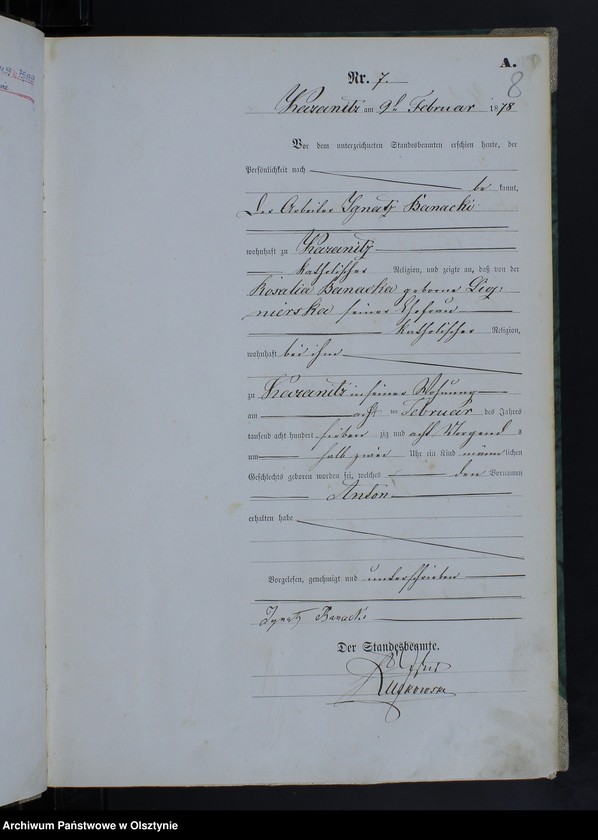 A.
8
Nr. 7.
Kazanitz am 9t Februar 1878
Vor dem unterzeichneten Standesbeamten erschien heute, der
Persönlichkeit nach
be kannt,
Der Arbeiter Ignatz Banacki
wohnhaft zu Kazanitz
katholischer Religion, und zeigte an, daß von der
Rosalia Banacka geborene
seiner Ehefrau
katholischer Religion,
wohnhaft bei ihm
zu Kazanitz in seiner Wohnung
am acht ten Februar des Jahres
tausend acht hundert sieben zig und acht Morgend s
um halb zwei Uhr ein Kind männ lichen
Geschlechts geboren worden sei, welches den Vornamen
Anton
erhalten habe
Vorgelesen, genehmigt und unterschrieben
Ignatz Banacki
Der Standesbeamte.
Archiwum Państwowe w Olsztynie